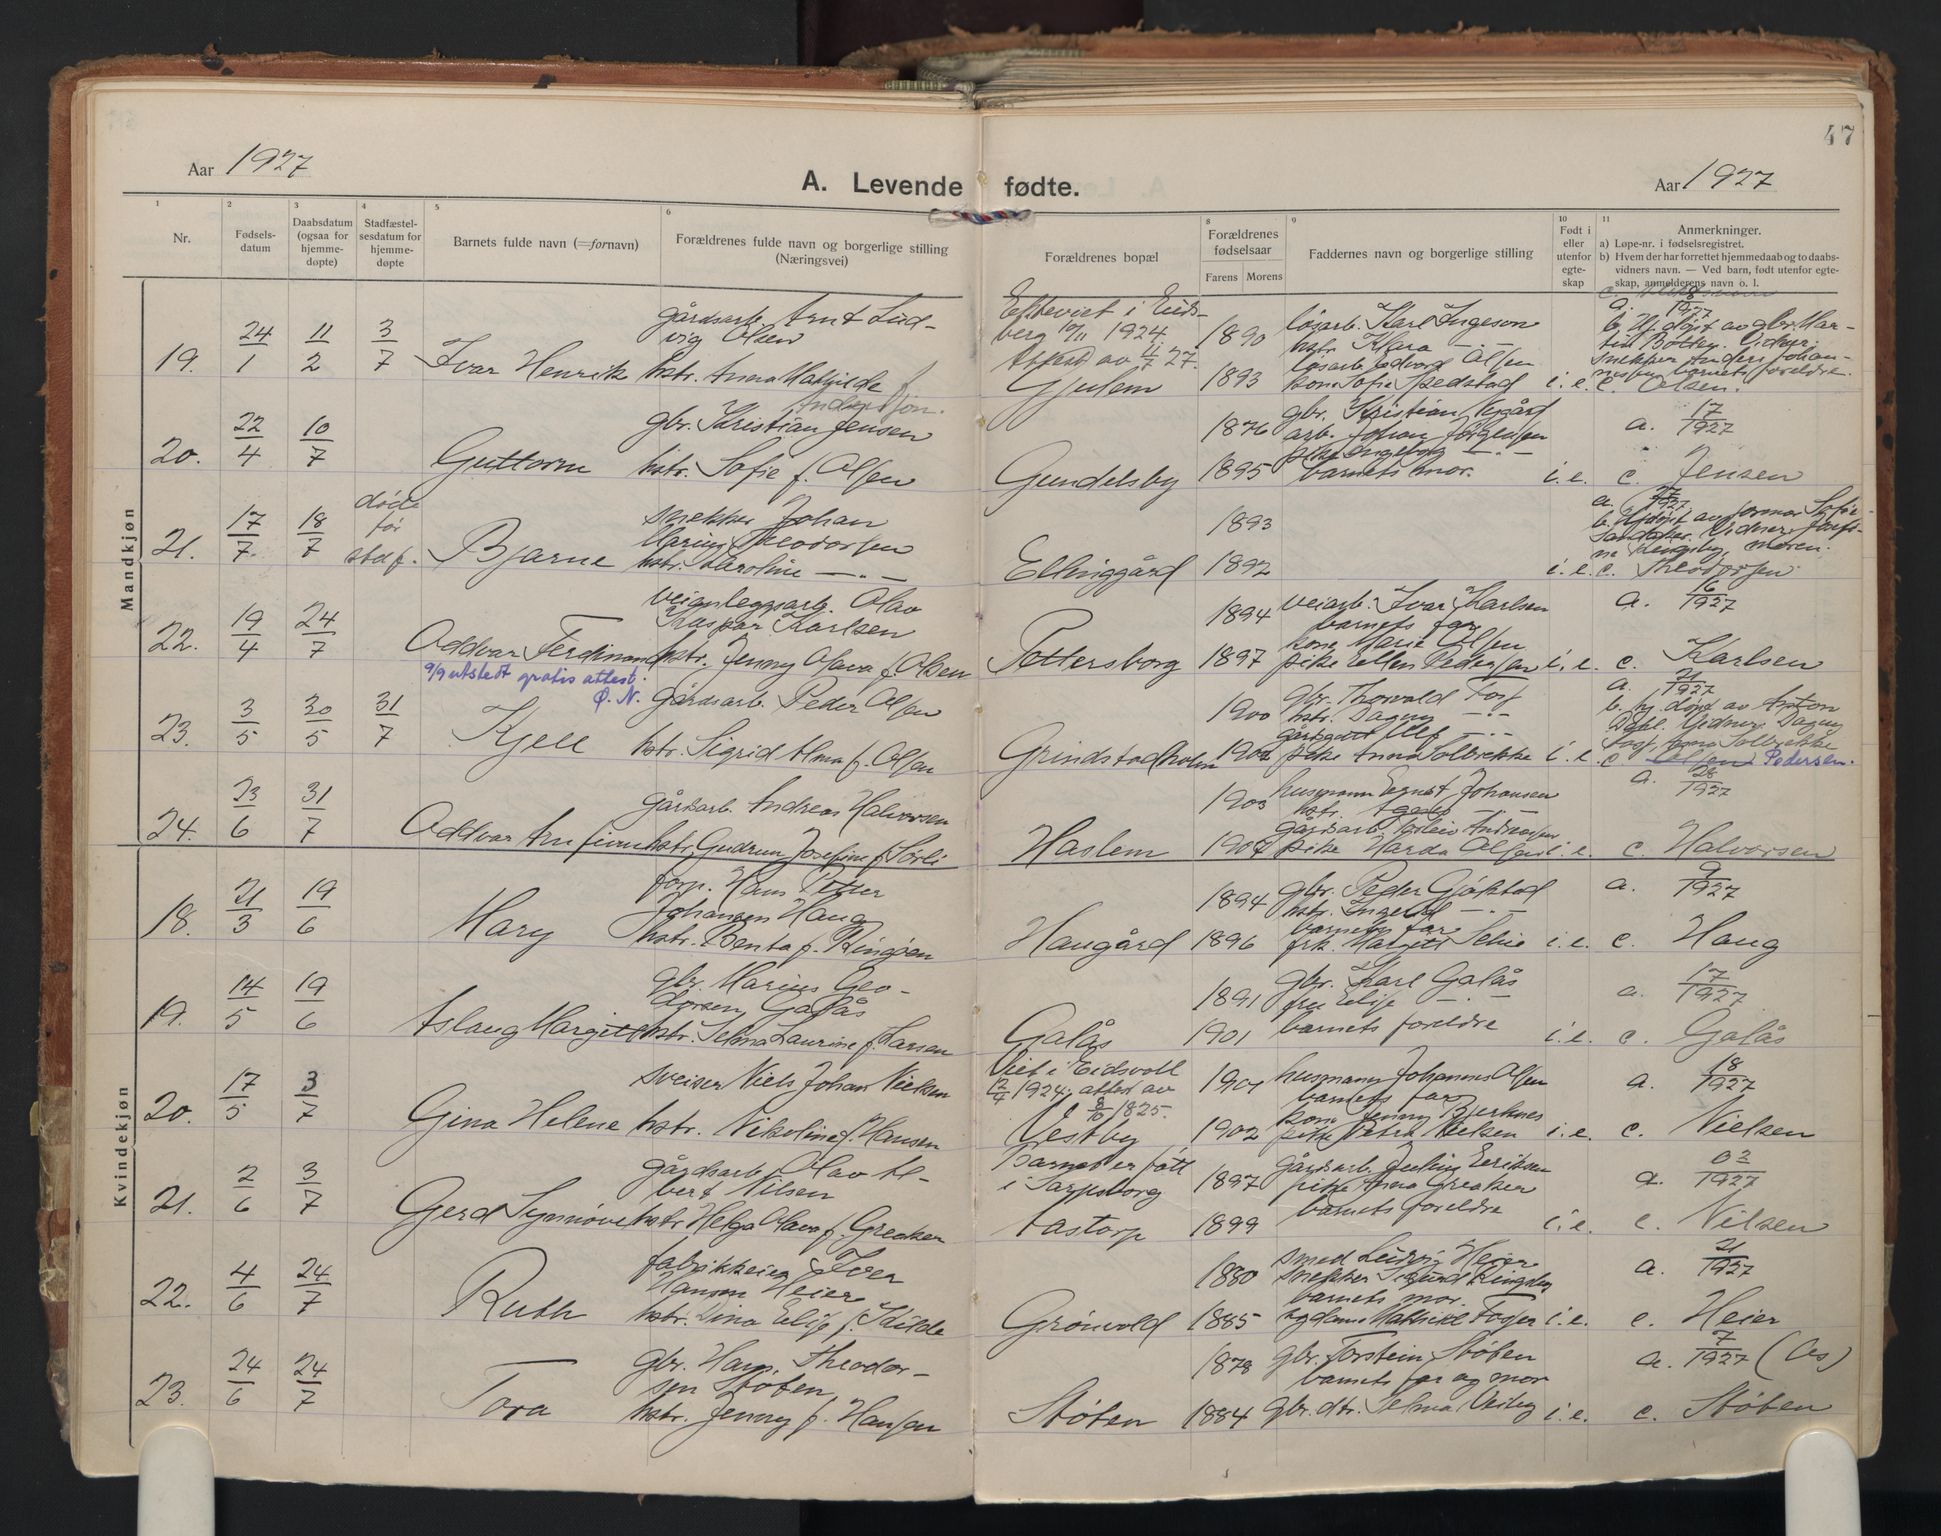 47
Aar 1927
A. Levende fødte.
Aar 1927
1 2 3 4 5 6 8 9 10 11
Nr.
Fødsels-
datum
Daabsdatum
(ogsaa for
hjemme-
døpte)
Stadfæstel-
sesdatum for
hjemme-
døpte
Barnets fulde navn (=fornavn)
Forældrenes fulde navn og borgerlige stilling
(Næringsvei)
Forældrenes bopæl
Forældrenes
fødselsaar
Farens Morens
Faddernes navn og borgerlige stilling
Født i
eller
utenfor
egte-
skap
Anmerkninger.
a) Løpe-nr. i fødselsregistret.
b) Hvem der har forrettet hjemmedaab og to daabs-
vidners navn. — Ved barn, født utenfor egte-
skap, anmelderens navn o. l.
Mandkjøn
19. 24/1 11/2 3/7 Ivar Henrik
gårdsarb. Arnt Lud-
vig Olsen
hstr. Anna Mathilde f.
Ekteviet i Eids-
berg 1924.
Attest av 27.
Gjulem
1890
1893
løsarb. Karl Ingeson
hstr. Klara —.—
løsarb. Edvard Olsen
kone Sofie Spedstad
i.e.
a. 8/1927
b. Hj.døpt av gbr. Mar-
tin Vidner:
snekker Anders Johan-
nesen, barnets foreldre.
c. Olsen.
20. 22/4 10/7 Guttorm
gbr. Kristian Jensen
hstr. Sofie f. Olsen
Gundelsby
1876
1895
gbr. Kristian Nygård
arb. Johan Jørgensen
pike Ingeborg —.—
barnets mor.
i.e.
a. 17/1927
c. Jensen
21. 17/7 18/7 døde
før
stadf.
Bjarne
snekker Johan
Marius Theodorsen
hstr. Karoline —.—
Ellinggård
1893
1892
i.e.
b. Hj.døpt av jormor Sofie
Vidner: Josefi-
ne moren.
c. Theodorsen
22. 19/4 24/7 Oddvar Ferdinand
9/9 utstedt gratis attest.
Ø. N.
veianleggsarb. Olav
Kaspar Karlsen
hstr. Jenny Olava f. Olsen
Pottersborg
1894
1897
veiarb. Ivar Karlsen
barnets far
kone Marie Olsen
pike Ellen Pedersen
i.e.
a. 16/1927
c. Karlsen
23. 3/5 30/5 31/7 Kjell
gårdsarb. Peder Olsen
hstr. Sigrid Alma f. Olsen
Grindstadholm
1900
1902
gbr. Thorvald Tosf
hstr. Dagny —.—
—.—
pike Anna Solbrekke
i.e.
a. 21/1927
b. hj.døpt av Anton
Dahl. Vidner: Dagny
Anna Solbrekke
c. Olsen Pedersen.
24. 23/6 31/7 Oddvar Arnfinn
gårdsarb. Andreas Halvorsen
hstr. Gudrun Josefine f. Sørli
Haslem
1903
1907
husmann Ernst Johansen
hstr. Agnes —.—
gårdsarb. Torleiv Andreassen
pike Harda Olsen
i.e.
a. 28/1927
c. Halvorsen
Kvindekjøn
18. 21/3 19/6 Mary
forp. Hans Petter
Johansen Haug
hstr. Benta f. Ringøen
Haugård
1894
1896
gbr. Peder Gjøkstad
hstr. Ingerid —.—
barnets far
frk. Margit Schie
i.e.
a. 9/1927
c. Haug
19. 14/5 19/6 Aslaug Margitt
gbr. Marius Geo-
dorsen Galås
hstr. Selma Laurine f. Larsen
Galås
1891
1901
gbr. Karl Galås
fru Elise —.—
barnets foreldre
i.e.
a. 17/1927
c. Galås
20. 17/5 3/7 Gina Helene
sveiser Niels Johan Nielsen
hstr. Nikoline f. Hansen
Viet i Eidsvoll
12/4 1924, attest av
8/10 1825.
Vestby
1901
1902
husmann Johannes Olsen
barnets far
kone Jenny Bjerknes
pike Petra Nielsen
i.e.
a. 18/1927
c. Nielsen
21. 2/6 3/7 Gerd Synnøve
gårdsarb. Olav Al-
bert Nilsen
hstr. Helga Olava f. Greaker
Barnet er født
i Sarpsborg
Tastorp
1897
1899
gårdsarb. Julius Eriksen
pike Anna Greaker
barnets foreldre
i.e.
a. 1927
c. Nilsen
22. 4/6 24/7 Ruth
fabrikkeier Iver
Hansen Heier
hstr. Dina Elise f. Skilde
Grönvold
1880
1885
smed Ludvig Heier
snekker Sigurd Ringsby
barnets mor.
ugdame Mathilde Foger
i.e.
a. 21/1927
c. Heier
23. 24/6 24/7 Tora
gbr. Hans Theodor-
sen Støten
hstr. Jenny f. Hansen
Støten
1878
1884
gbr. Torstein Støten
barnets far og mor
gbr.dtr. Selma Visby
i.e.
a. 7/1927 (Ås)
c. Støten